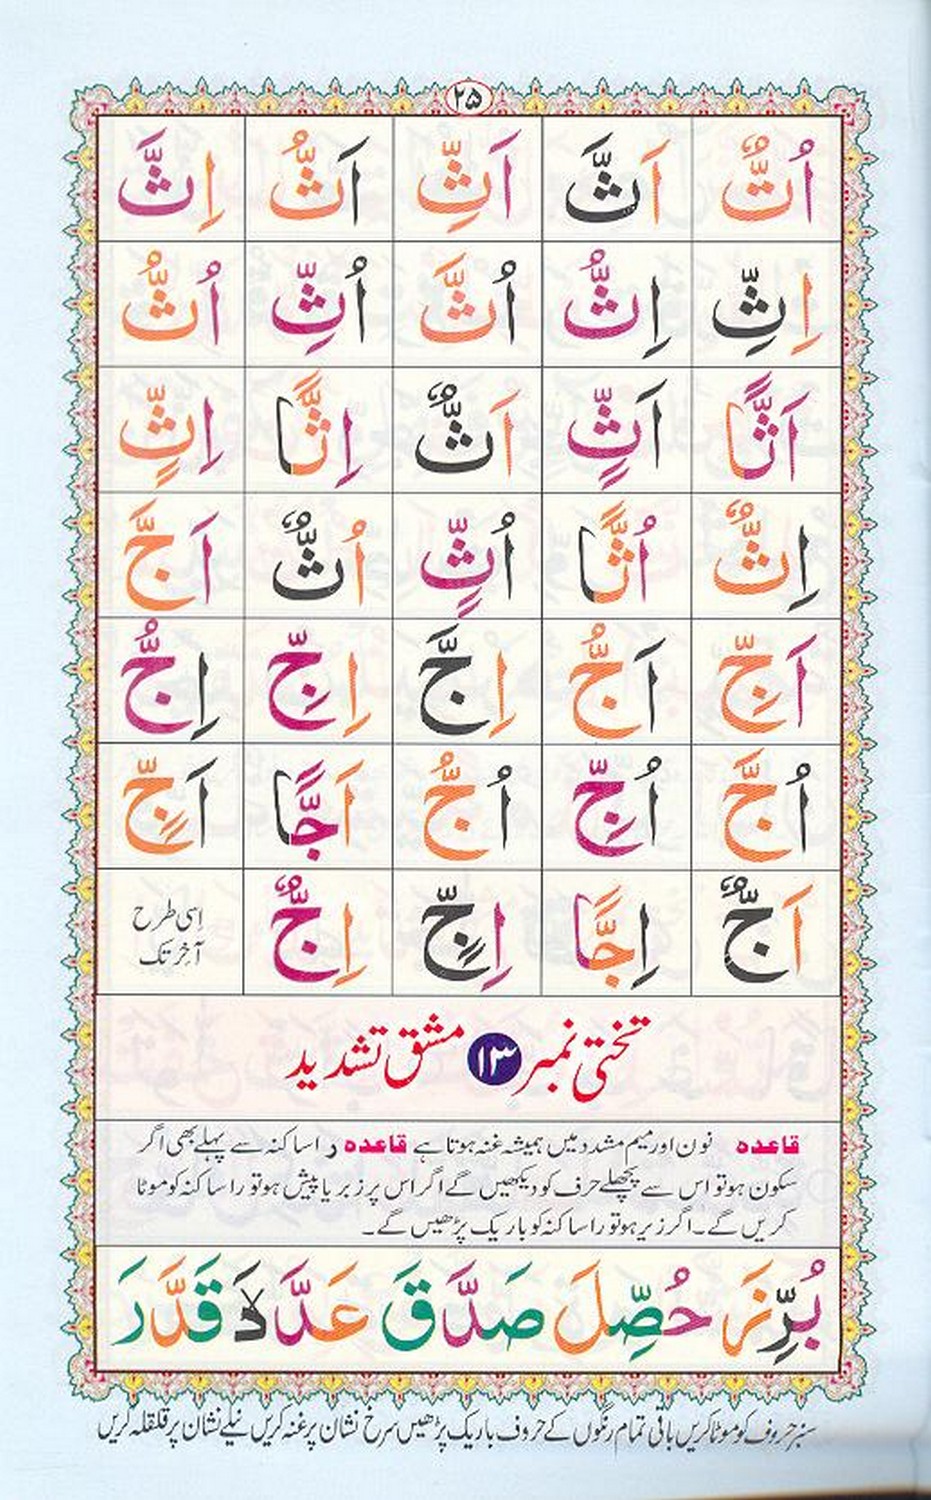 ۲۵
اُتٌّ اَثَّ اَثِّ اَثُّ اِثَّ
اِثِّ اِثُّ اُثَّ اُثِّ اُثُّ
اَثًّا اَثٍّ اَثٌّ اِثًّا اِثٍّ
اِثٌّ اُثًّا اُثٍّ اُثٌّ اَجَّ
اَجِّ اَجُّ اِجَّ اِجِّ اِجُّ
اُجَّ اُجِّ اُجُّ اَجًّا اَجٍّ
اَجٌّ اِجًّا اِجٍّ اِجٌّ اِسی طرح
آخر تک
تختی نمبر ۱۳ مشق تشدید
قاعدہ نون اور میم مشدد میں ہمیشہ غنہ ہوتا ہے قاعدہ ر اساکنہ سے پہلے بھی اگر
سکون ہو تو اس سے پچھلے حرف کو دیکھیں گے اگر اس پر زبر یا پیش ہو تو را ساکنہ کو موٹا
کریں گے۔ اگر زیر ہو تو را ساکنہ کو باریک پڑھیں گے۔
بُرِّزَ حُصِّلَ صَدَّقَ عَدَّدَهٗ قَدَّرَ
سبز حروف کو موٹا کریں باقی تمام رنگوں کے حروف باریک پڑھیں سرخ نشان پر غنہ کریں نیلے نشان پر قلقلہ کریں